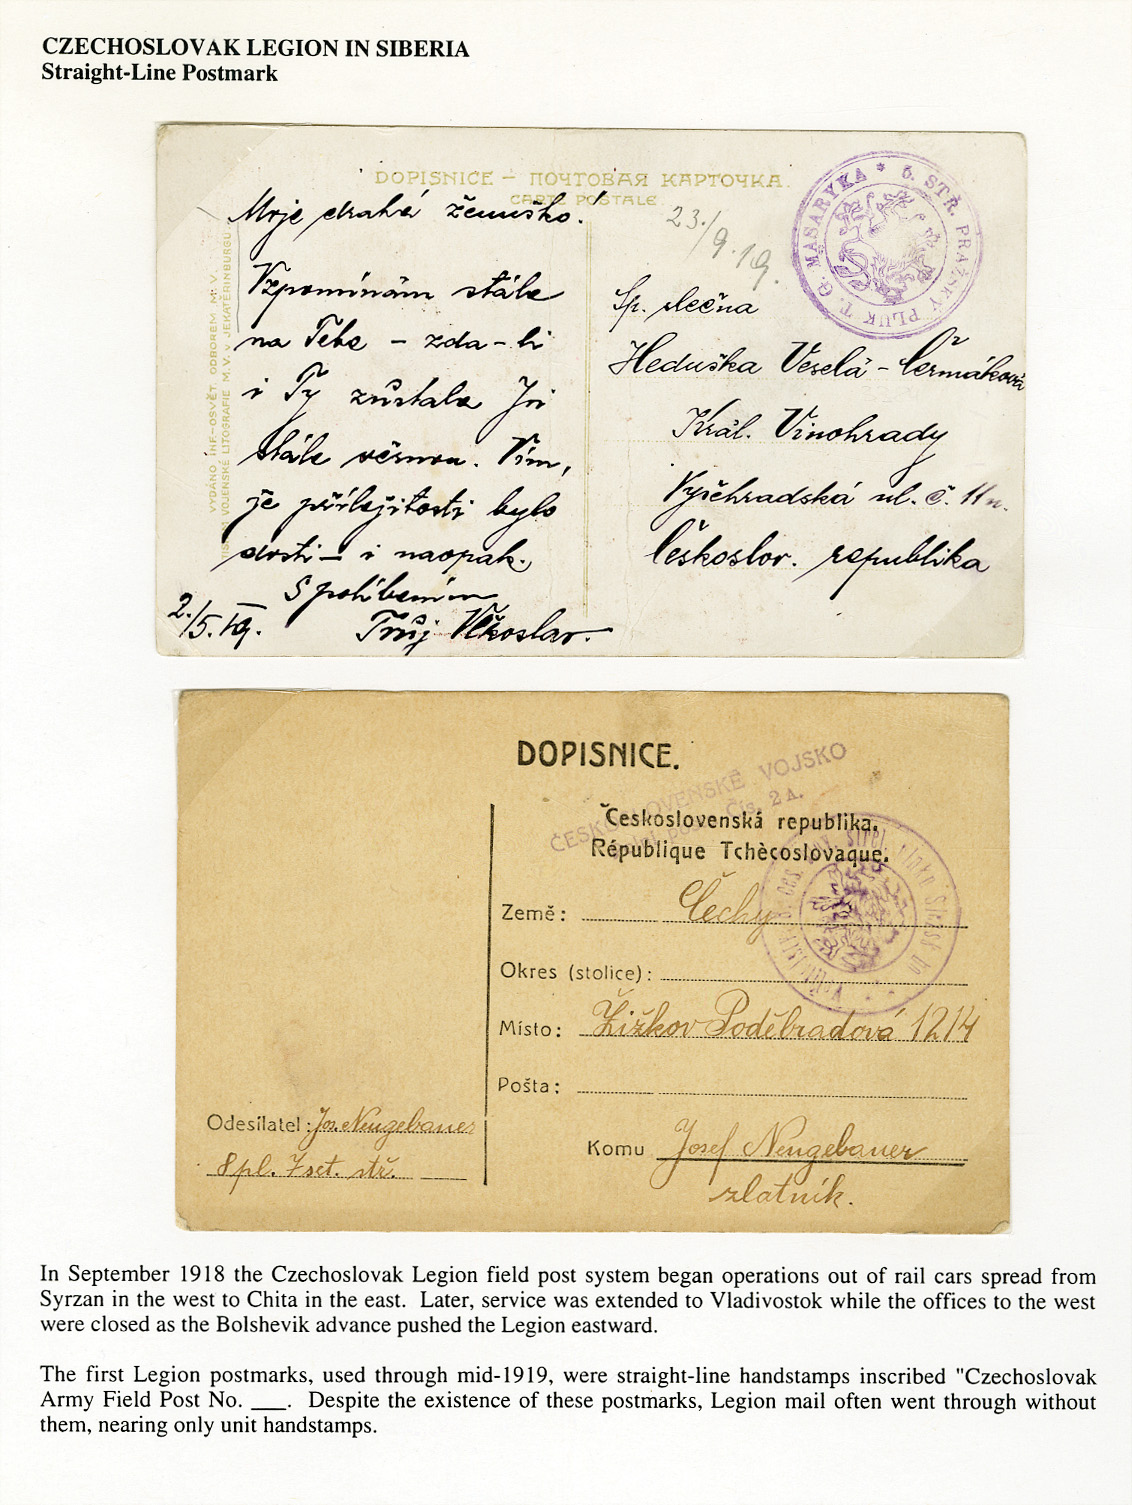 CZECHOSLOVAK LEGION IN SIBERIA
Straight-Line Postmark
DOPISNICE – ПОЧТОВАЯ КАРТОЧКА.
CARTE POSTALE
T. G. MASARYKA * 5. STŘ. PRAŽSKÝ PLUK
23./9.19.
VYDÁNO INF.-OSVĚT. ODBOREM M. V.
VOJENSKÉ LITOGRAFIE M. V. V JEKATĚRINBURGU.
Moje drahá ženuško!
Vzpomínám stále
na Tebe – zda-li
i Ty zůstala Jsi
stále věrnou. Vím,
že příležitosti bylo
dosti – i naopak.
S políbením
2./5.19.
Tvůj Vlkoslav.
Sp. slečna
Heduška Veselá – Čermáková
Král. Vinohrady
Vyšehradská ul. č. 11
Českoslov. republika
DOPISNICE.
ČESKOSLOVENSKÉ VOJSKO
Čís. 2 A.
Československá republika.
République Tchècoslovaque.
Země: Čechy
Okres (stolice):
Místo: Žižkov Poděbradová 1214
Pošta:
Odesílatel: Jos. Neugebauer
8 pl. 7 set. stř.
Komu Josef Neugebauer
zlatník.
In September 1918 the Czechoslovak Legion field post system began operations out of rail cars spread from
Syrzan in the west to Chita in the east. Later, service was extended to Vladivostok while the offices to the west
were closed as the Bolshevik advance pushed the Legion eastward.
The first Legion postmarks, used through mid-1919, were straight-line handstamps inscribed "Czechoslovak
Army Field Post No. ___. Despite the existence of these postmarks, Legion mail often went through without
them, nearing only unit handstamps.